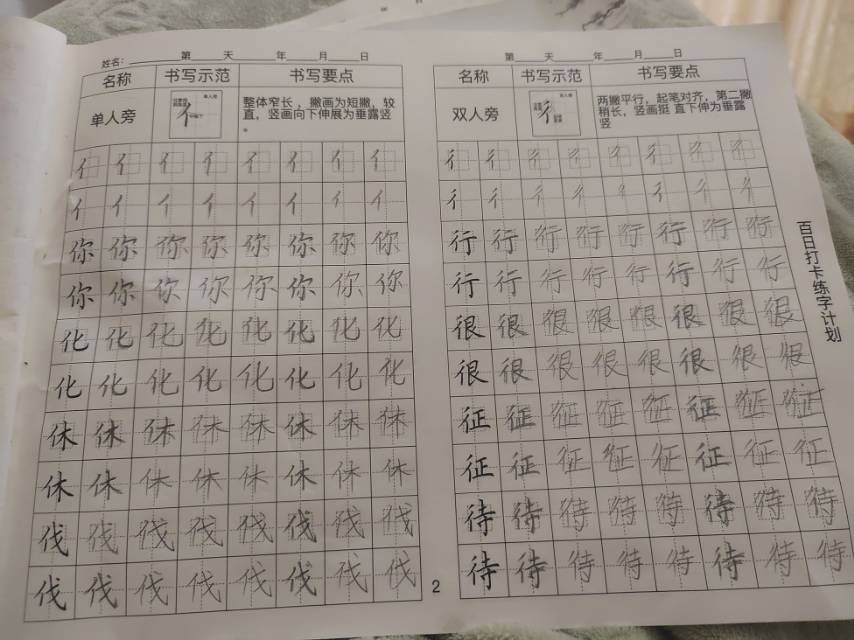 姓名：______第___天 ____年___月___日
名称 书写示范 书写要点
单人旁 亻 整体窄长，撇画为短撇，较
直，竖画向下伸展为垂露竖
。
亻 亻 亻 亻 亻 亻 亻 亻
亻 亻 亻 亻 亻 亻 亻 亻
你 你 你 你 你 你 你 你
你 你 你 你 你 你 你 你
化 化 化 化 化 化 化 化
化 化 化 化 化 化 化 化
休 休 休 休 休 休 休 休
休 休 休 休 休 休 休 休
伐 伐 伐 伐 伐 伐 伐 伐
伐 伐 伐 伐 伐 伐 伐 伐
第___天 ____年___月___日
名称 书写示范 书写要点
双人旁 彳 两撇平行，起笔对齐，第二撇
稍长，竖画挺 直下伸为垂露
竖
彳 彳 彳 彳 彳 彳 彳 彳
彳 彳 彳 彳 彳 彳 彳 彳
行 行 行 行 行 行 行 行
行 行 行 行 行 行 行 行
很 很 很 很 很 很 很 很
很 很 很 很 很 很 很 很
征 征 征 征 征 征 征 征
征 征 征 征 征 征 征 征
待 待 待 待 待 待 待 待
待 待 待 待 待 待 待 待
2
百日打卡练字计划